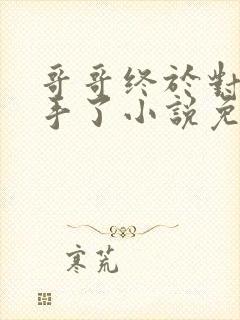 哥哥终於對
手了小說免
寒荒